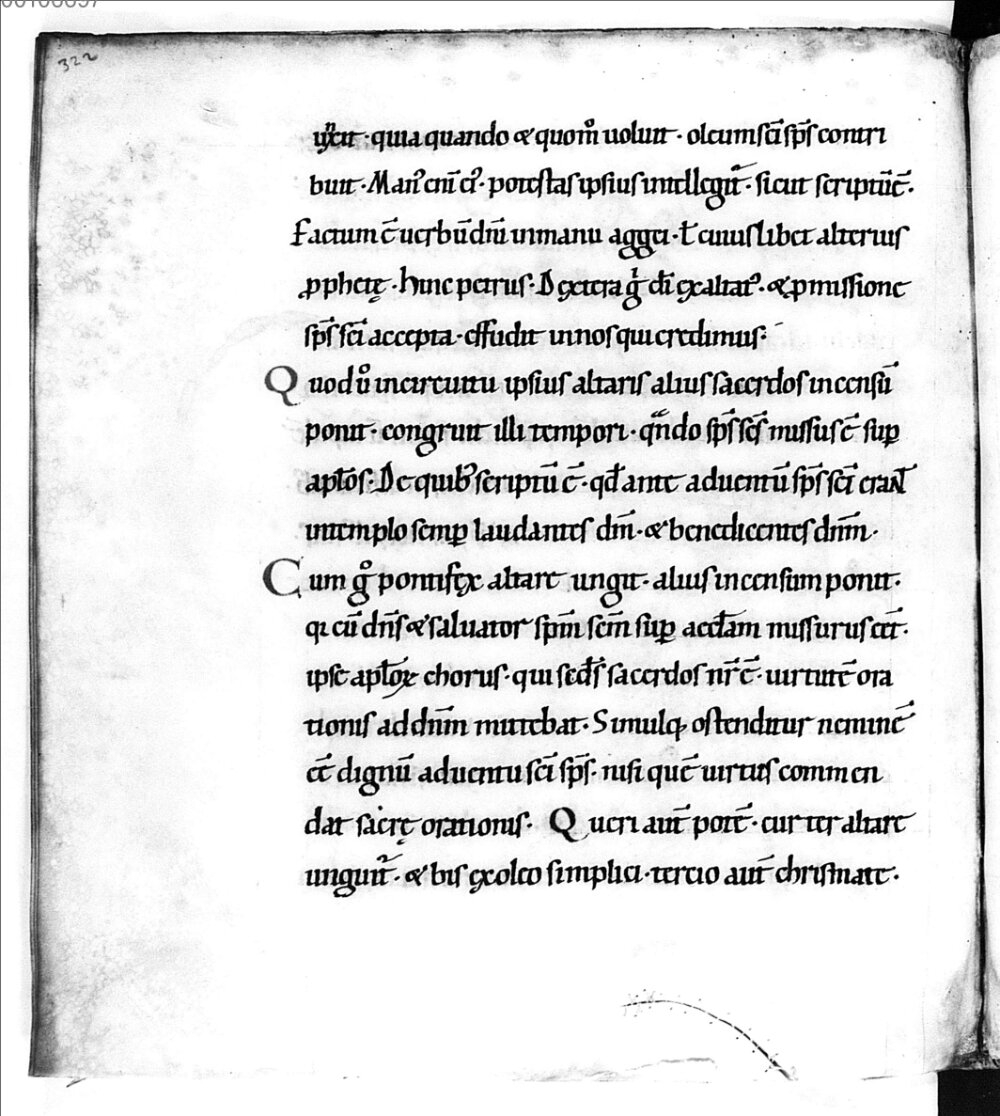 322
uNxit · quia quando & quom̊ uoluit · oleum sc̄i sp̄s contri
buit · Man⁹ eni᷒ ei⁹ · potestas ipsius intellegit᷑ · sicut scriptū ē ·
Factum ē uerbū dn̄i in manu aggei · ł cuiuslibet alterius
ꝓphetę · hinc petrus · Dextera gͥ d̄i exaltat⁹ · & ꝓmissione
sp̄s sc̄i accepta · effudit in nos qui credimus ·
Quod ů in circuitu ipsius altaris alius sacerdos incensū
ponit · congruit illi tempori · qͣndo sp̄s sc̄s missus ē sup̱
apłos · De quib; scriptū ē · qđ ante aduentū sp̄s sc̄i erant
in templo semp̱ laudantes dm̄ · & benedicentes dn̄m ·
Cum g̊ pontifex altare ungit · alius incensum ponit ·
qi cū dn̄s & saluator sp̄m sc̄m sup̱ accłam missurus eēt ·
ipse apłoꝝ chorus · qui sed̄s sacerdos nr̄ ē · uirtutē ora
tionis ad dn̄m mittebat · Simulꝙ ostenditur neminē
eē dignū aduentu sc̄i sp̄s · nisi quē uirtus commen
dat sacrę orationis · Queri aut̄ potē · cur ter altare
unguit᷑ · & bis ex oleo simplici · tercio aut̄ christmate ·